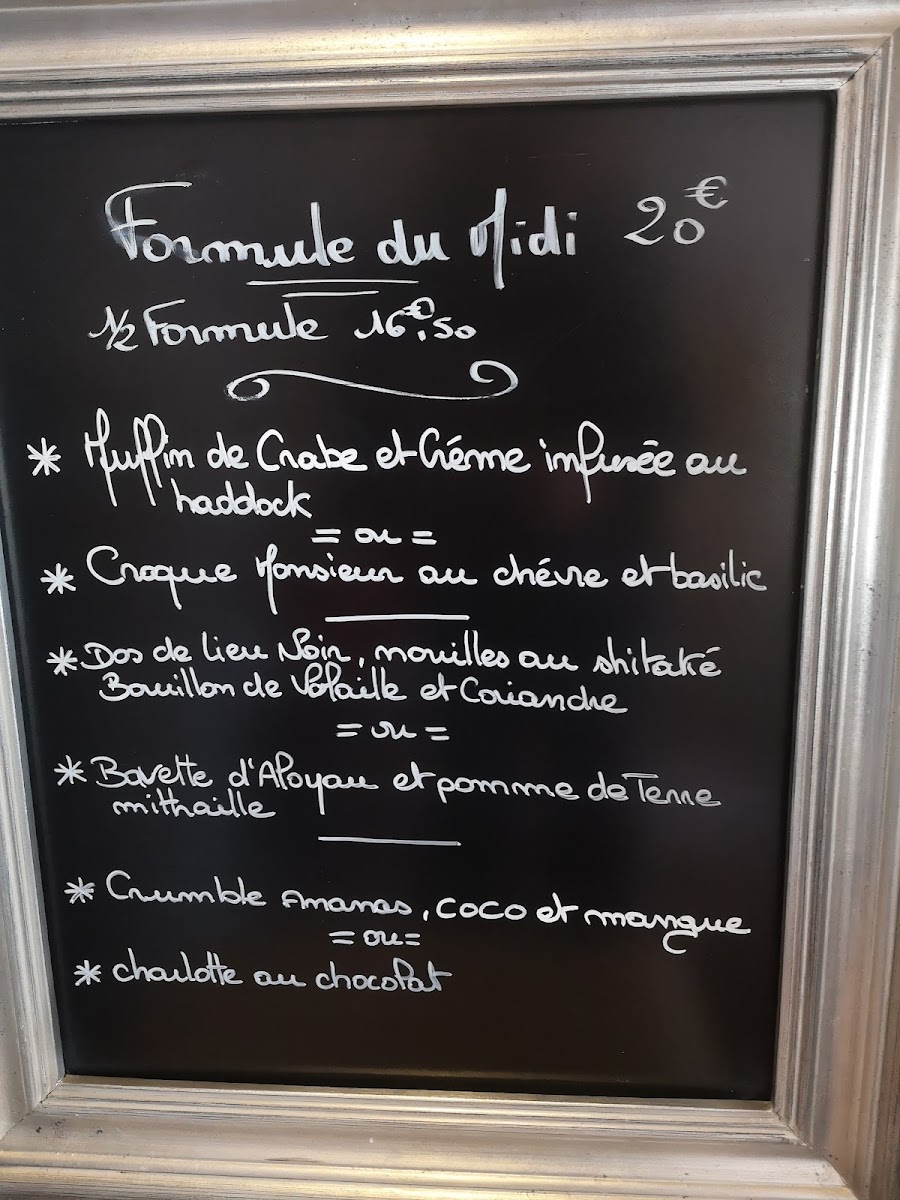 Formule du Midi 20€
1/2 Formule 16€.50
* Muffin de Crabe et Créme infusée au
haddock
= ou =
* Croque Monsieur au chévre et basilic
* Dos de lieu Noir, nouilles au shitaké
Bouillon de Volaille et Coriandre
= ou =
* Bavette d'Aloyau et pomme de Terre
mitraille
* Crumble Ananas, coco et mangue
= ou =
* charlotte au chocolat